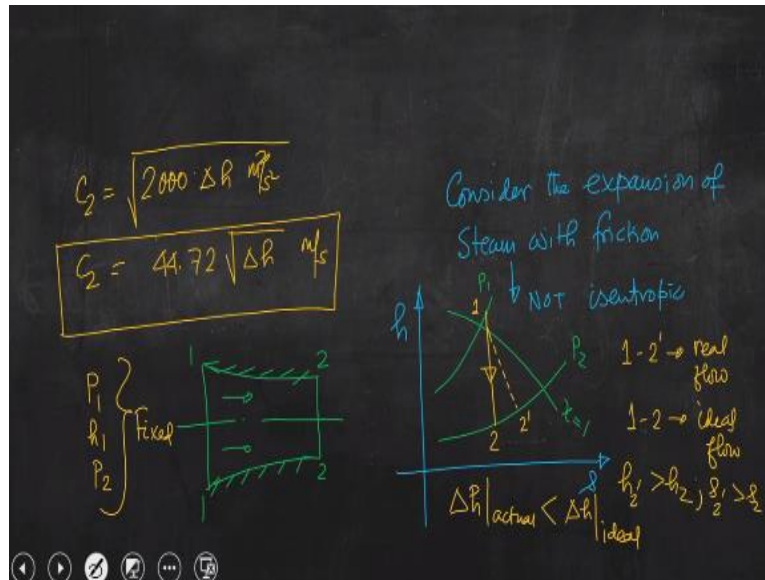 C₂ = √2000·Δh m²/s²
C₂ = 44.72 √Δh m/s
P₁
h₁
P₂
} Fixed
1 2
1 2
Consider the expansion of
Steam with friction
↓ NOT isentropic
h
P₁
1
P₂
2 2'
x=1
s
1-2' → real
flow
1-2 → ideal
flow
h₂' > h₂ ; s₂' > s₂
Δh|actual < Δh|ideal